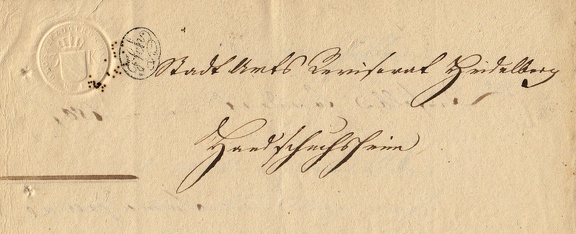 Stadt Amts Revisorat Heidelberg
Handschuchsheim